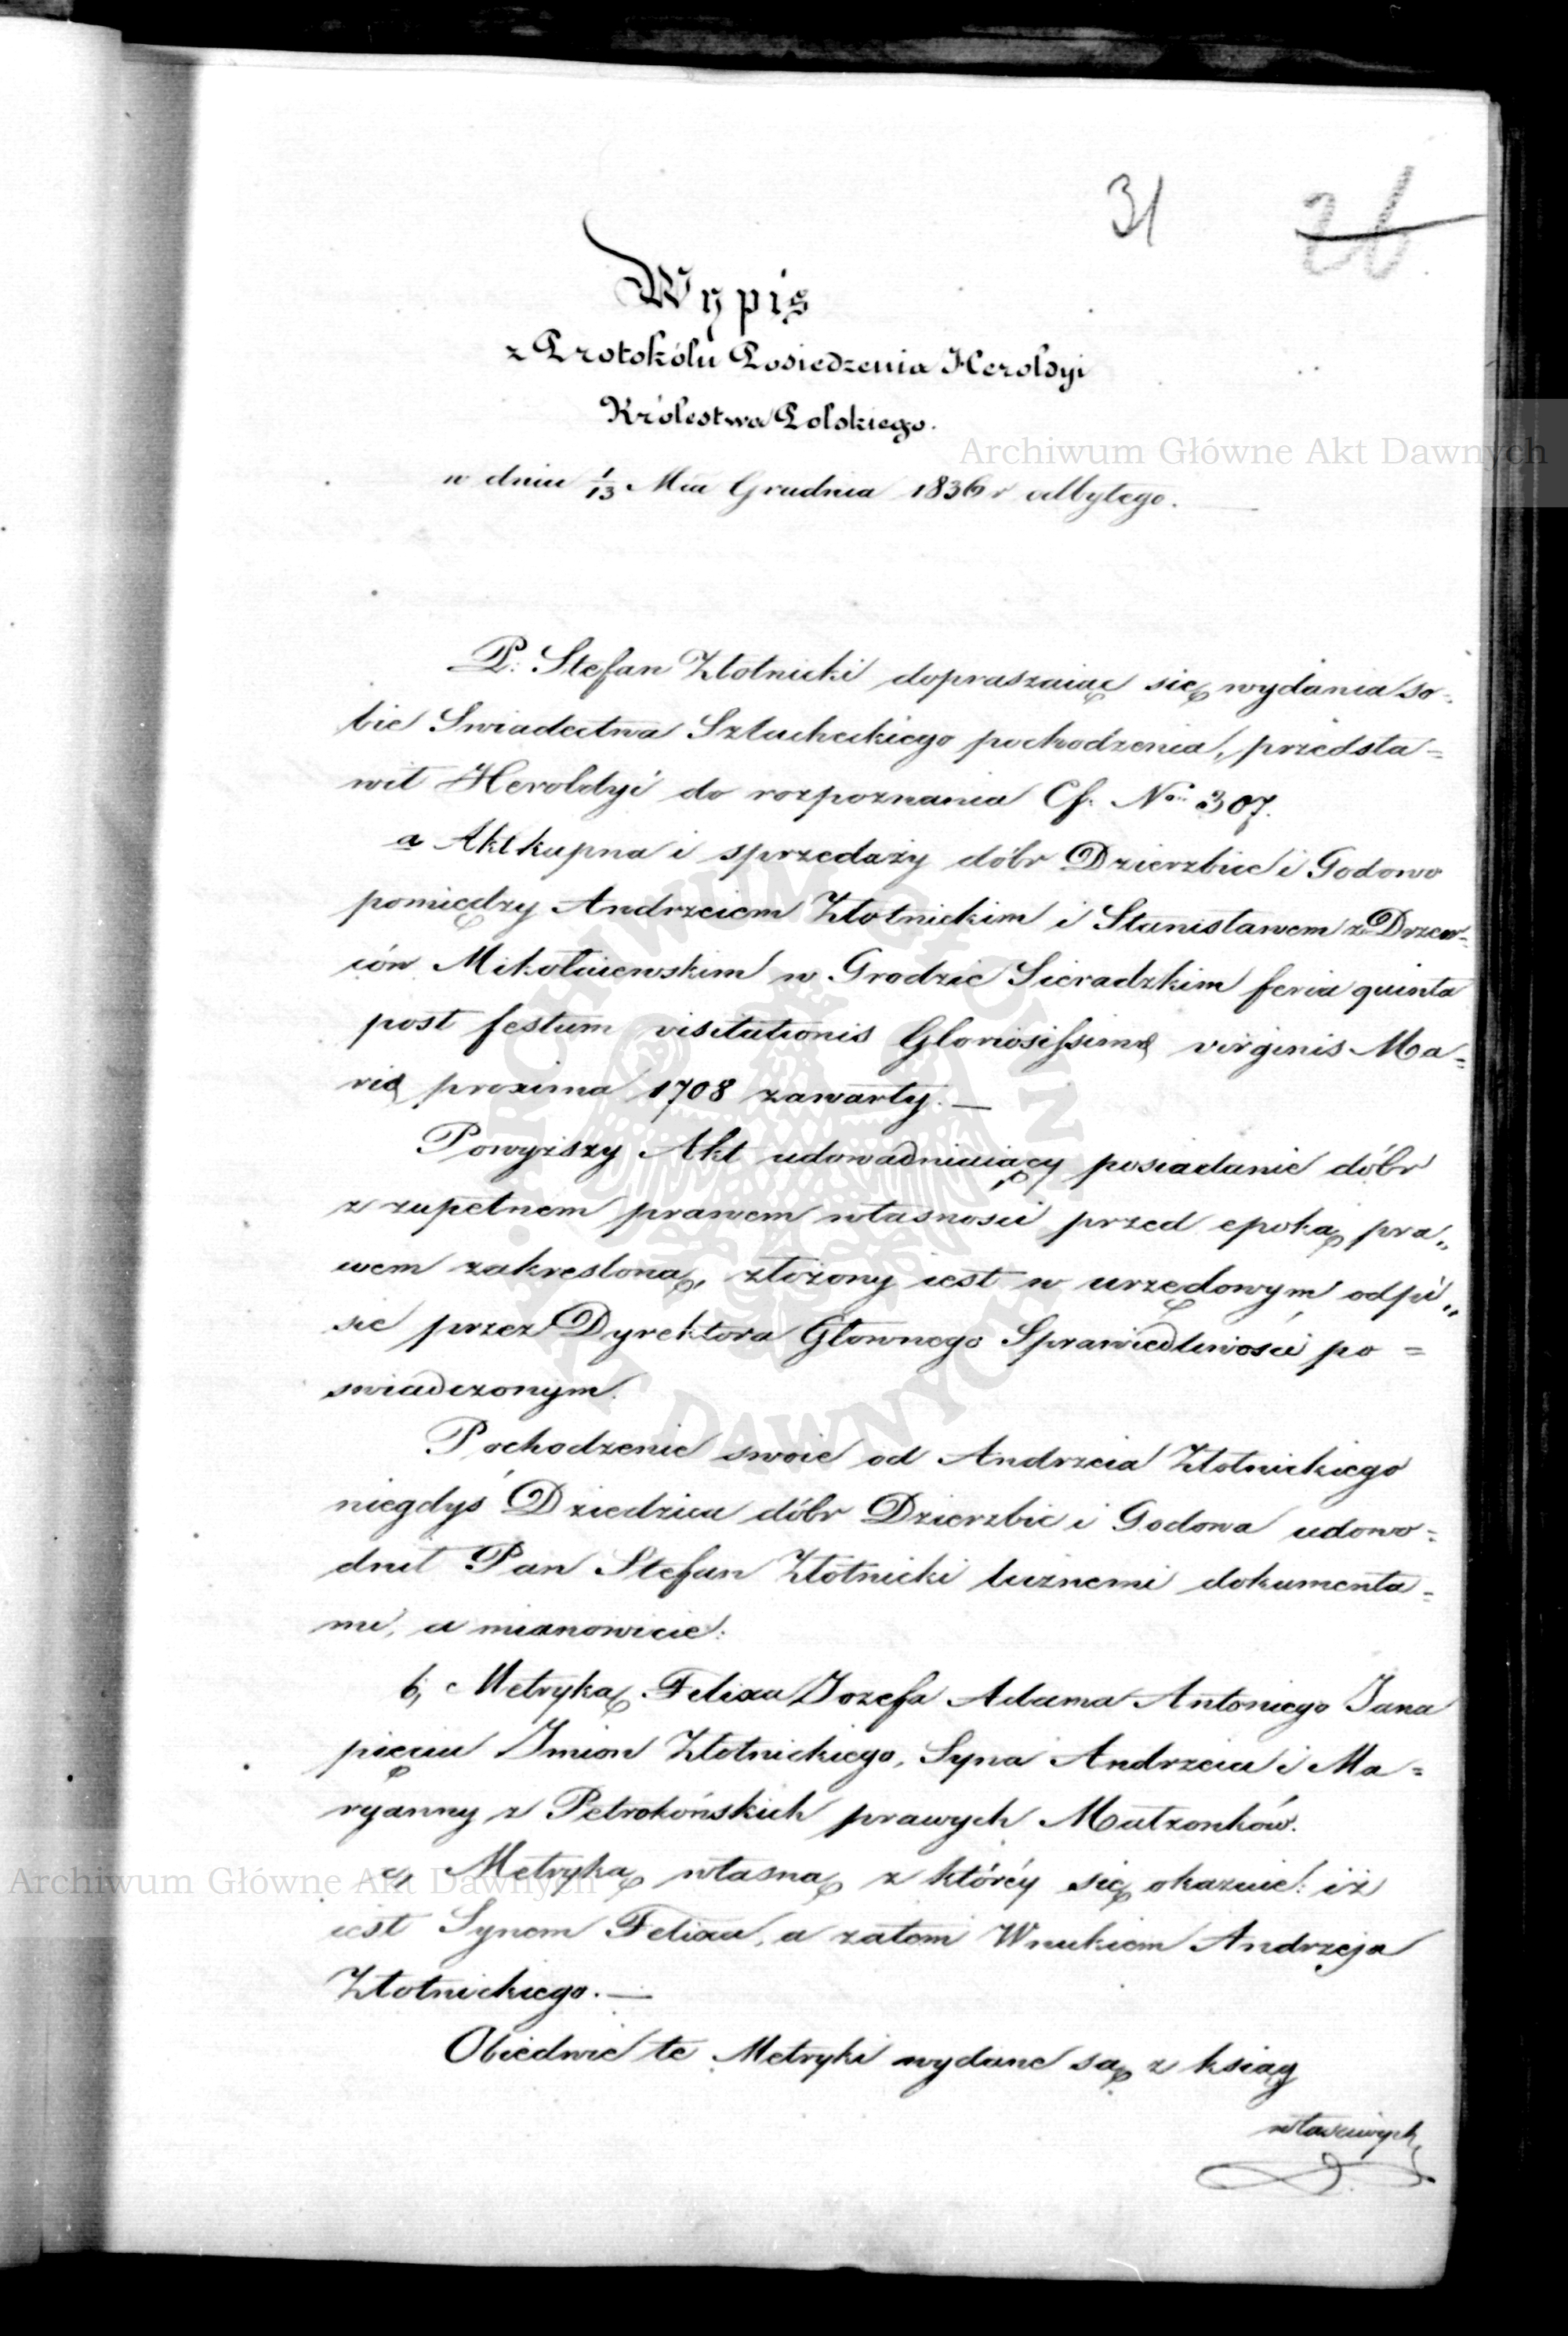 31
26
Wypis
z Protokólu Posiedzenia Heroldyi
Królestwa Polskiego.
w dniu 1/13 Mca Grudnia 1836 r odbytego.
P. Stefan Złotnicki dopraszaiąc się wydania so-
bie Swiadectwa Szlacheckiego pochodzenia, przedsta=
wił Heroldyi do rozpoznania Cf. Nro 307.
a Akt kupna i sprzedaży dóbr Dzierzbice i Godowo
pomiędzy Andrzeiem Złotnickim i Stanisławem z Drzew-
iów Mikołaiewskim w Grodzie Sieradzkim feria quinta
post festum visitationis Gloriosissimæ virginis Ma=
riæ proxima 1708 zawarty. —
Powyższy Akt udowadniaiący posiadanie dóbr
z zupełnem prawem własności przed epoką pra„
wem zakreśloną, złożony iest w urzędowym odpi„
sie przez Dyrektora Głownego Sprawiedliwości po=
swiadczonym.
Pochodzenie swoie od Andrzeia Złotnickiego
niegdyś Dziedzica dóbr Dzierzbic i Godowa udowo=
dnił Pan Stefan Złotnicki licznemi dokumenta=
mi, a mianowicie:
b, Metryką Felixa Jozefa Adama Antoniego Jana
pięciu Imion Złotnickiego, Syna Andrzeia i Ma=
ryanny z Petrokońskich prawych Małżonków.
c, Metryką własną z któréy się okazuie: iż
iest Synem Felixa, a zatem Wnukiem Andrzeja
Złotnickiego. —
Obiedwie te Metryki wydane są z ksiąg
właściwych
Archiwum Główne Akt Dawnych
ARCHIWUM GŁÓWNE AKT DAWNYCH
Archiwum Główne Akt Dawnych